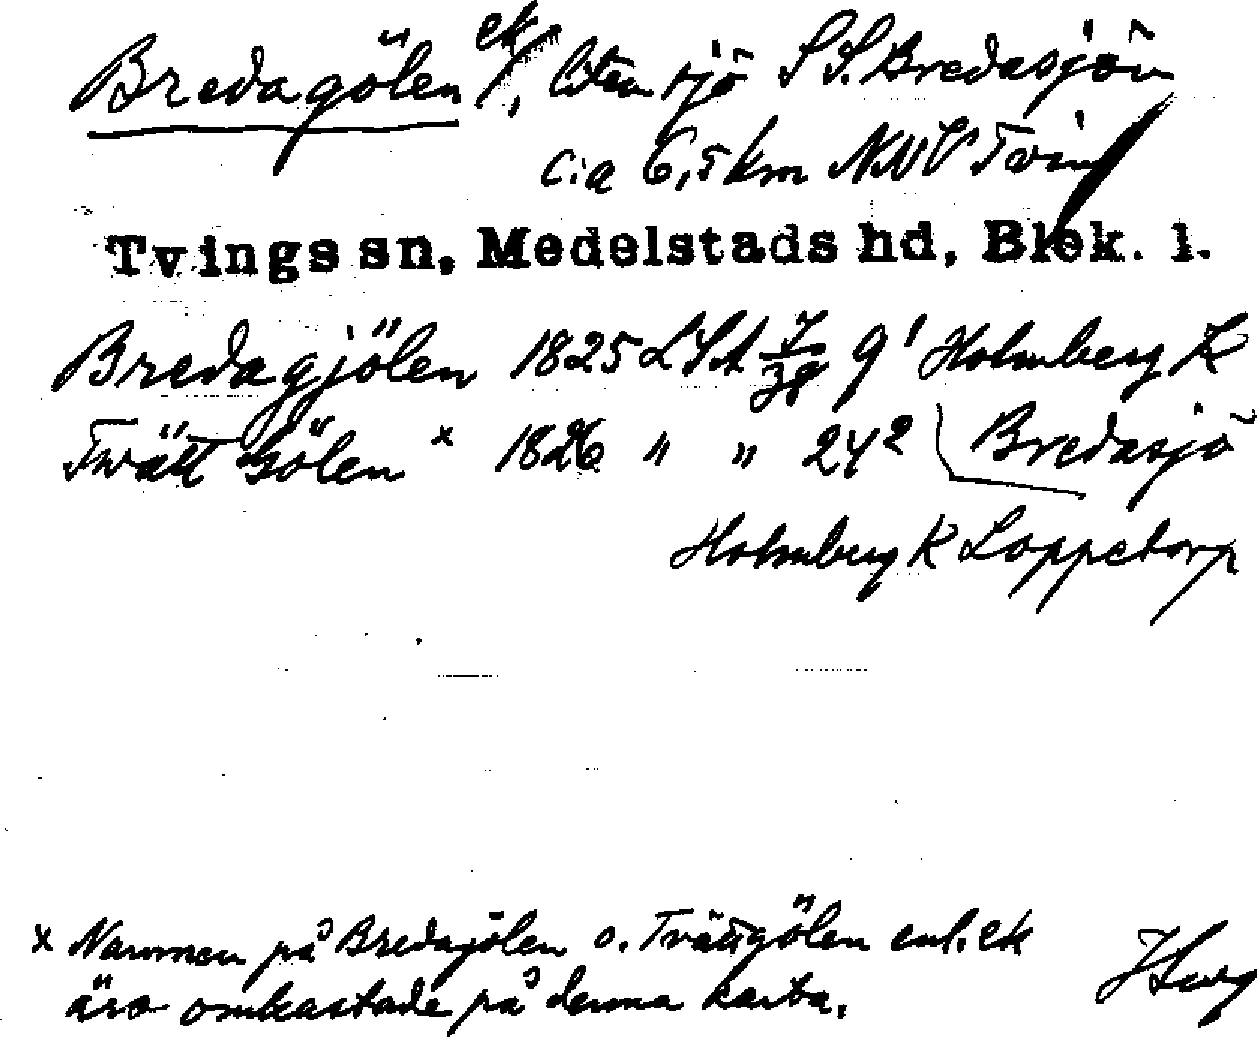 Bredagölen ek, liten sjö S S. Bredasjön
c:a 6,5 km NNV Tving
Tvings sn, Medelstads hd, Blek. l.
Bredagjölen 1825 LSA 9¹ Holmberg K
Tvätt Gölen x 1826 " " 24² Bredasjö
Holmberg K Loppetorp
x Namnen på Bredagölen o. Trättgölen enl. ek
äro omkastade på denna karta.